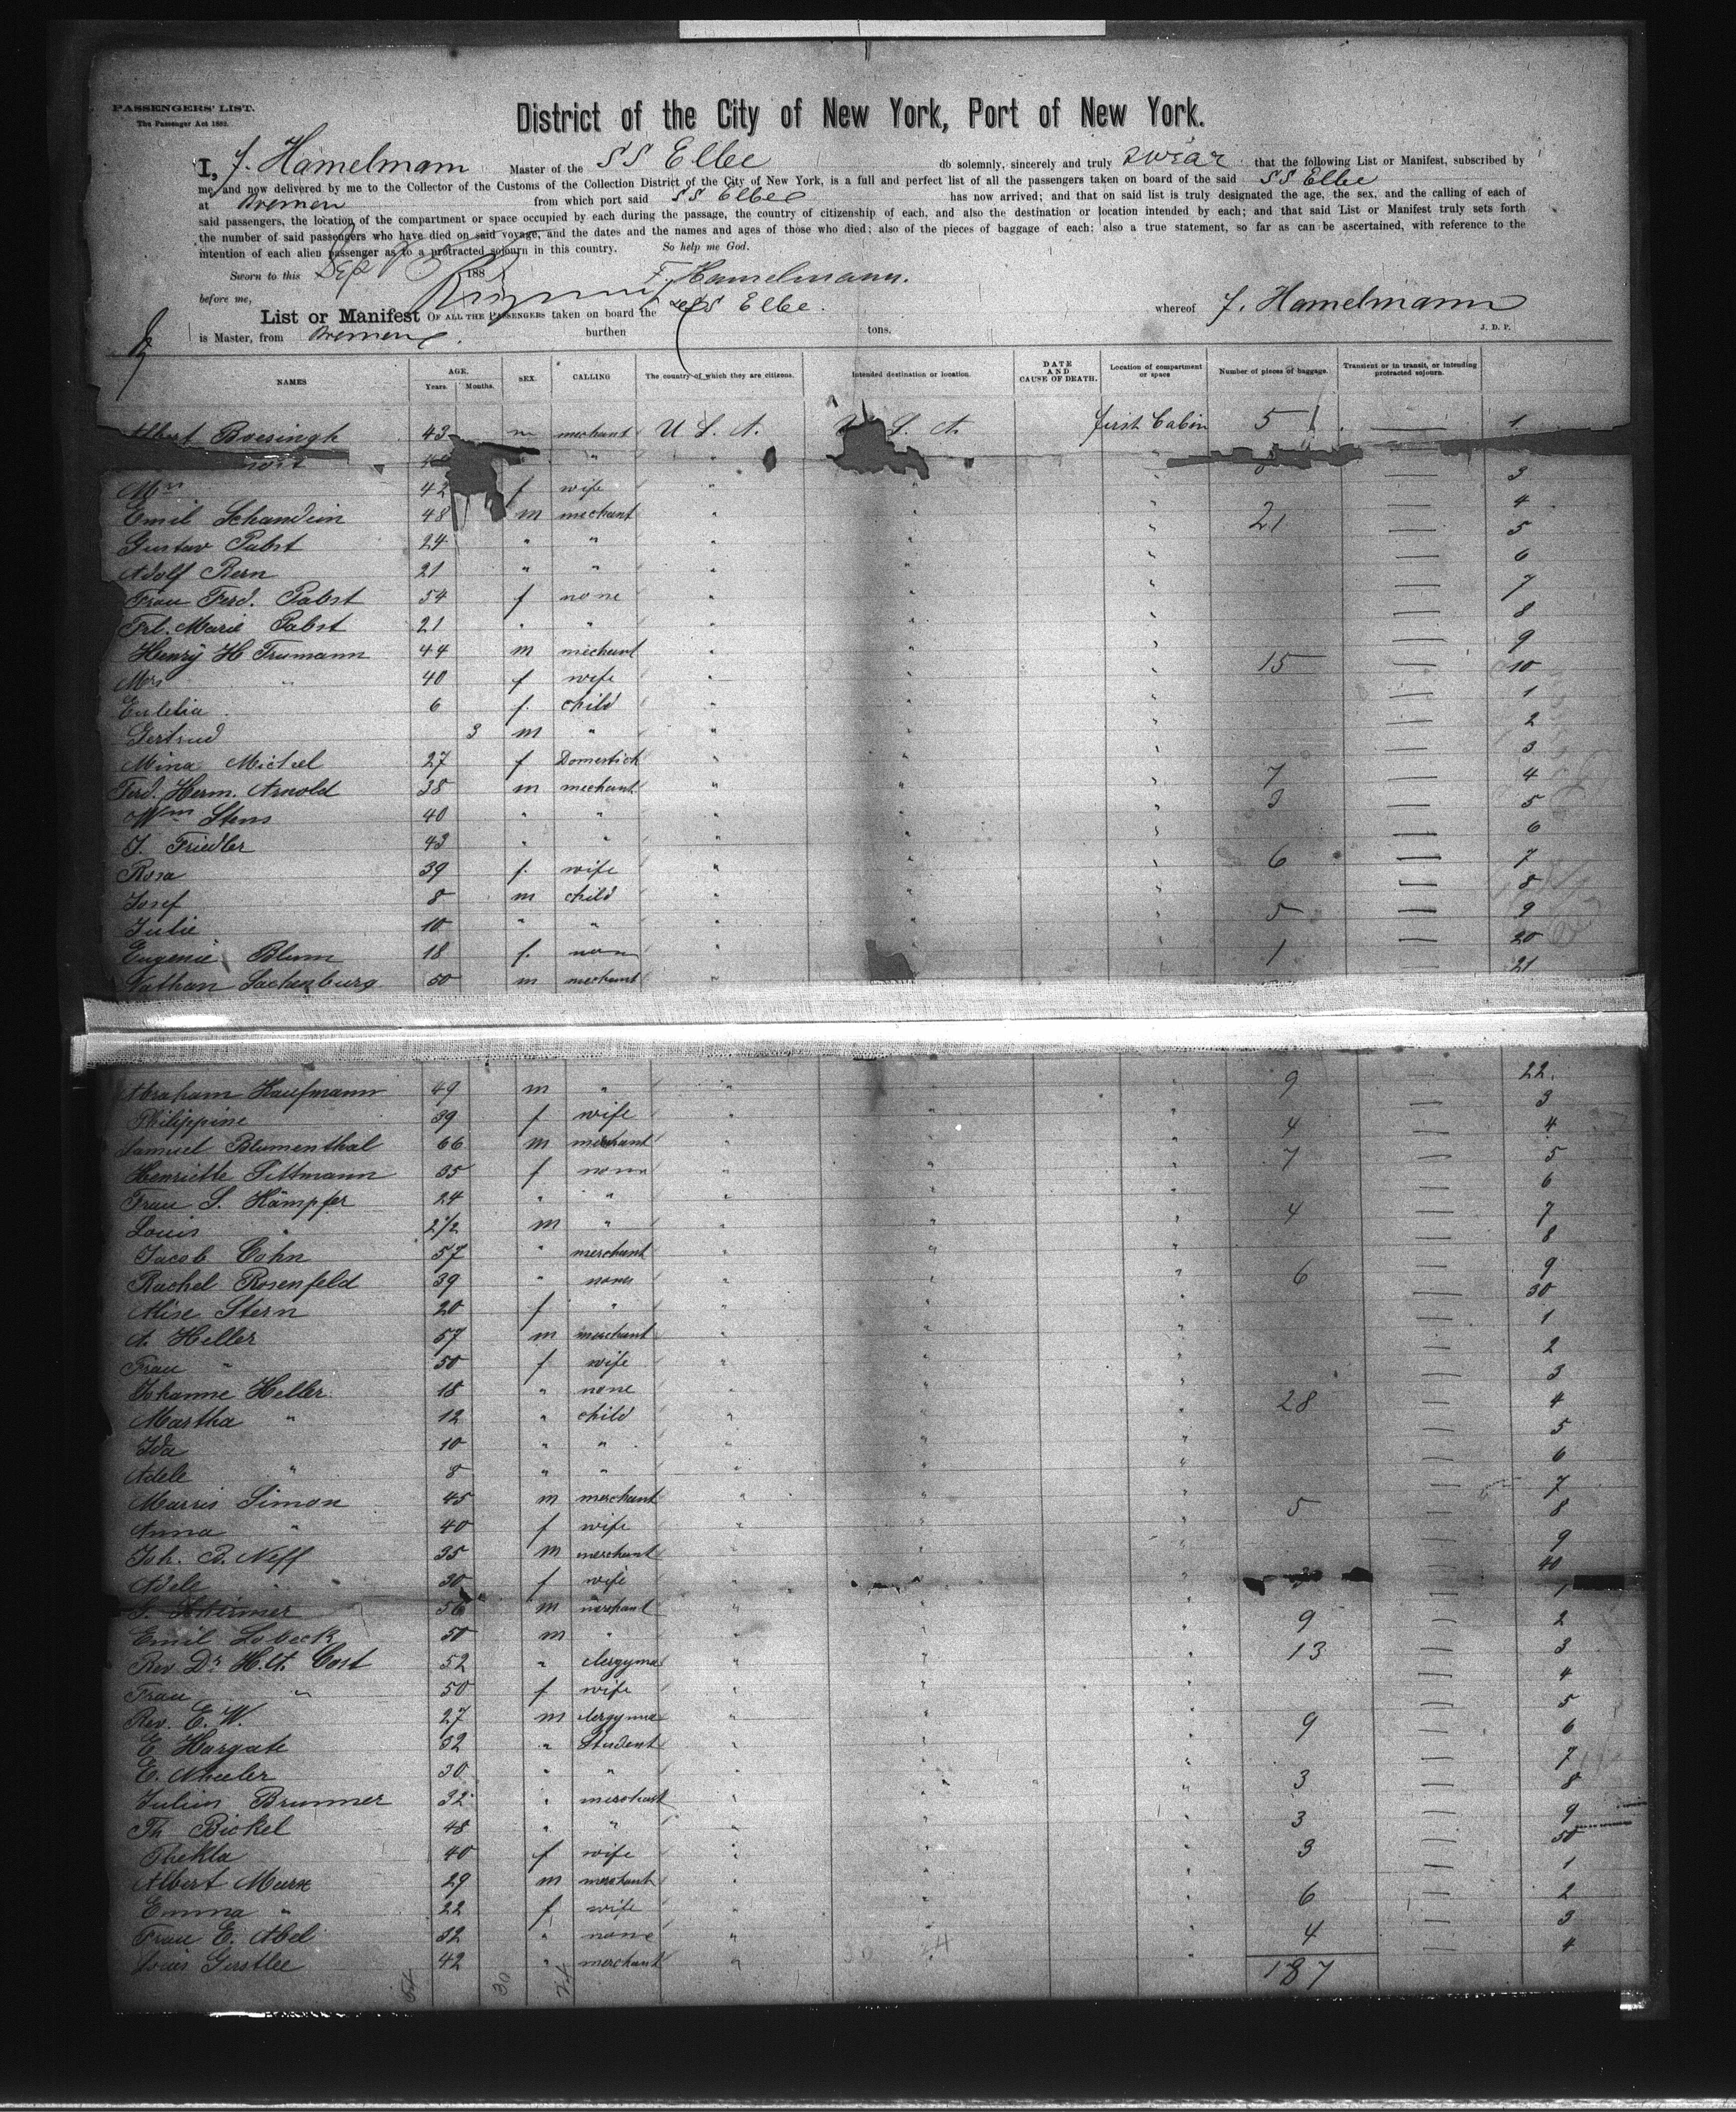 PASSENGERS' LIST.
The Passenger Act 1882.
District of the City of New York, Port of New York.
I, F. Hamelmann Master of the SS Elbe do solemnly, sincerely and truly swear that the following List or Manifest, subscribed by
me, and now delivered by me to the Collector of the Customs of the Collection District of the City of New York, is a full and perfect list of all the passengers taken on board of the said SS Elbe
at Bremen from which port said SS Elbe has now arrived; and that on said list is truly designated the age, the sex, and the calling of each of
said passengers, the location of the compartment or space occupied by each during the passage, the country of citizenship of each, and also the destination or location intended by each; and that said List or Manifest truly sets forth
the number of said passengers who have died on said voyage, and the dates and the names and ages of those who died; also of the pieces of baggage of each; also a true statement, so far as can be ascertained, with reference to the
intention of each alien passenger as to a protracted sojourn in this country. So help me God.
Sworn to this Sep 188
F. Hamelmann.
before me,
List or Manifest OF ALL THE PASSENGERS taken on board the SS Elbe. whereof F. Hamelmann
is Master, from Bremen burthen tons. J. D. P.
NAMES AGE. Years. Months. SEX. CALLING The country of which they are citizens. Intended destination or location. DATE AND CAUSE OF DEATH. Location of compartment or space Number of pieces of baggage. Transient or in transit, or intending protracted sojourn.
Albert Boesingh 43 m merchant U. S. A. U. S. A. first Cabin 5 — 1
" "
Mrs 42 f wife " " " — 3
Emil Schandein 48 m merchant " " 21 — 4
Gustav Pabst 24 " " " " " — 5
Adolf Bern 21 " " " " " — 6
Frau Ferd. Pabst 54 f none " " " — 7
Frl. Marie Pabst 21 " " " " " — 8
Henry H Trumann 44 m merchant " " " 15 — 9
Mrs " 40 f wife " " " — 10
Eulelia 6 f. child " " " — 1
Gertrud 3 m " " " " — 2
Mina Michel 27 f Domestick " " " — 3
Ferd. Herm. Arnold 38 m merchant " " " 7 — 4
Wm Stens 40 " " " " " 3 — 5
J. Friedler 43 " " " " " — 6
Rosa 39 f. wife " " " 6 — 7
Josef 8 m child " " " — 8
Julie 10 " " " " " 5 — 9
Eugenie Blum 18 f. non " " 1 — 20
Nathan Sachenburg 50 m merchant " 21
Abraham Kaufmann 49 m " " " " 9 — 22.
Philippine 39 f wife " " " — 3
Samuel Blumenthal 66 m merchant " " 4 — 4
Henriette Pittmann 35 f none " " " 7 — 5
Frau S. Kämpfer 24 " " " " " — 6
Louis " 2 1/2 m " " " " 4 — 7
Jacob Cohn 57 " merchant " " " — 8
Rachel Rosenfeld 39 " none " " " 6 — 9
Alise Stern 20 f " " " " — 30
A. Heller 57 m merchant " " " — 1
Frau " 50 f wife " " " — 2
Johanne Heller 18 " none " " " — 3
Martha " 12 " child " " " 28 — 4
Ida 10 " " " " " — 5
Adele " 8 " " " " " — 6
Morris Simon 45 m merchant " " " — 7
Anna " 40 f wife " " " 5 — 8
Joh. B. Neff 35 m merchant " " " — 9
Adele 30 f wife " " — 40
Schirmer 56 m merchant " " — 1
Emil Lobeck 50 m " " " " 9 — 2
Rev Dr H. A. Cost 52 " clergyma " " " 13 — 3
Frau " 50 f wife " " " — 4
Rev. E. W. 27 m clergyma " " " — 5
E Hargate 32 " Student " " " 9 — 6
E. Wheeler 30 " " " " " — 7
Julius Brunner 32 " merchant " " " 3 — 8
Th Bickel 48 " " " " " 3 — 9
Thekla 40 f wife " " " 3 — 50
Albert Marx 29 m merchant " " " — 1
Emma " 22 f wife " " " 6 — 2
Frau E. Abel 32 " none " " " 4 — 3
Louis Gerstlee 42 " merchant " " " — 4
30 24
54 30 24
187